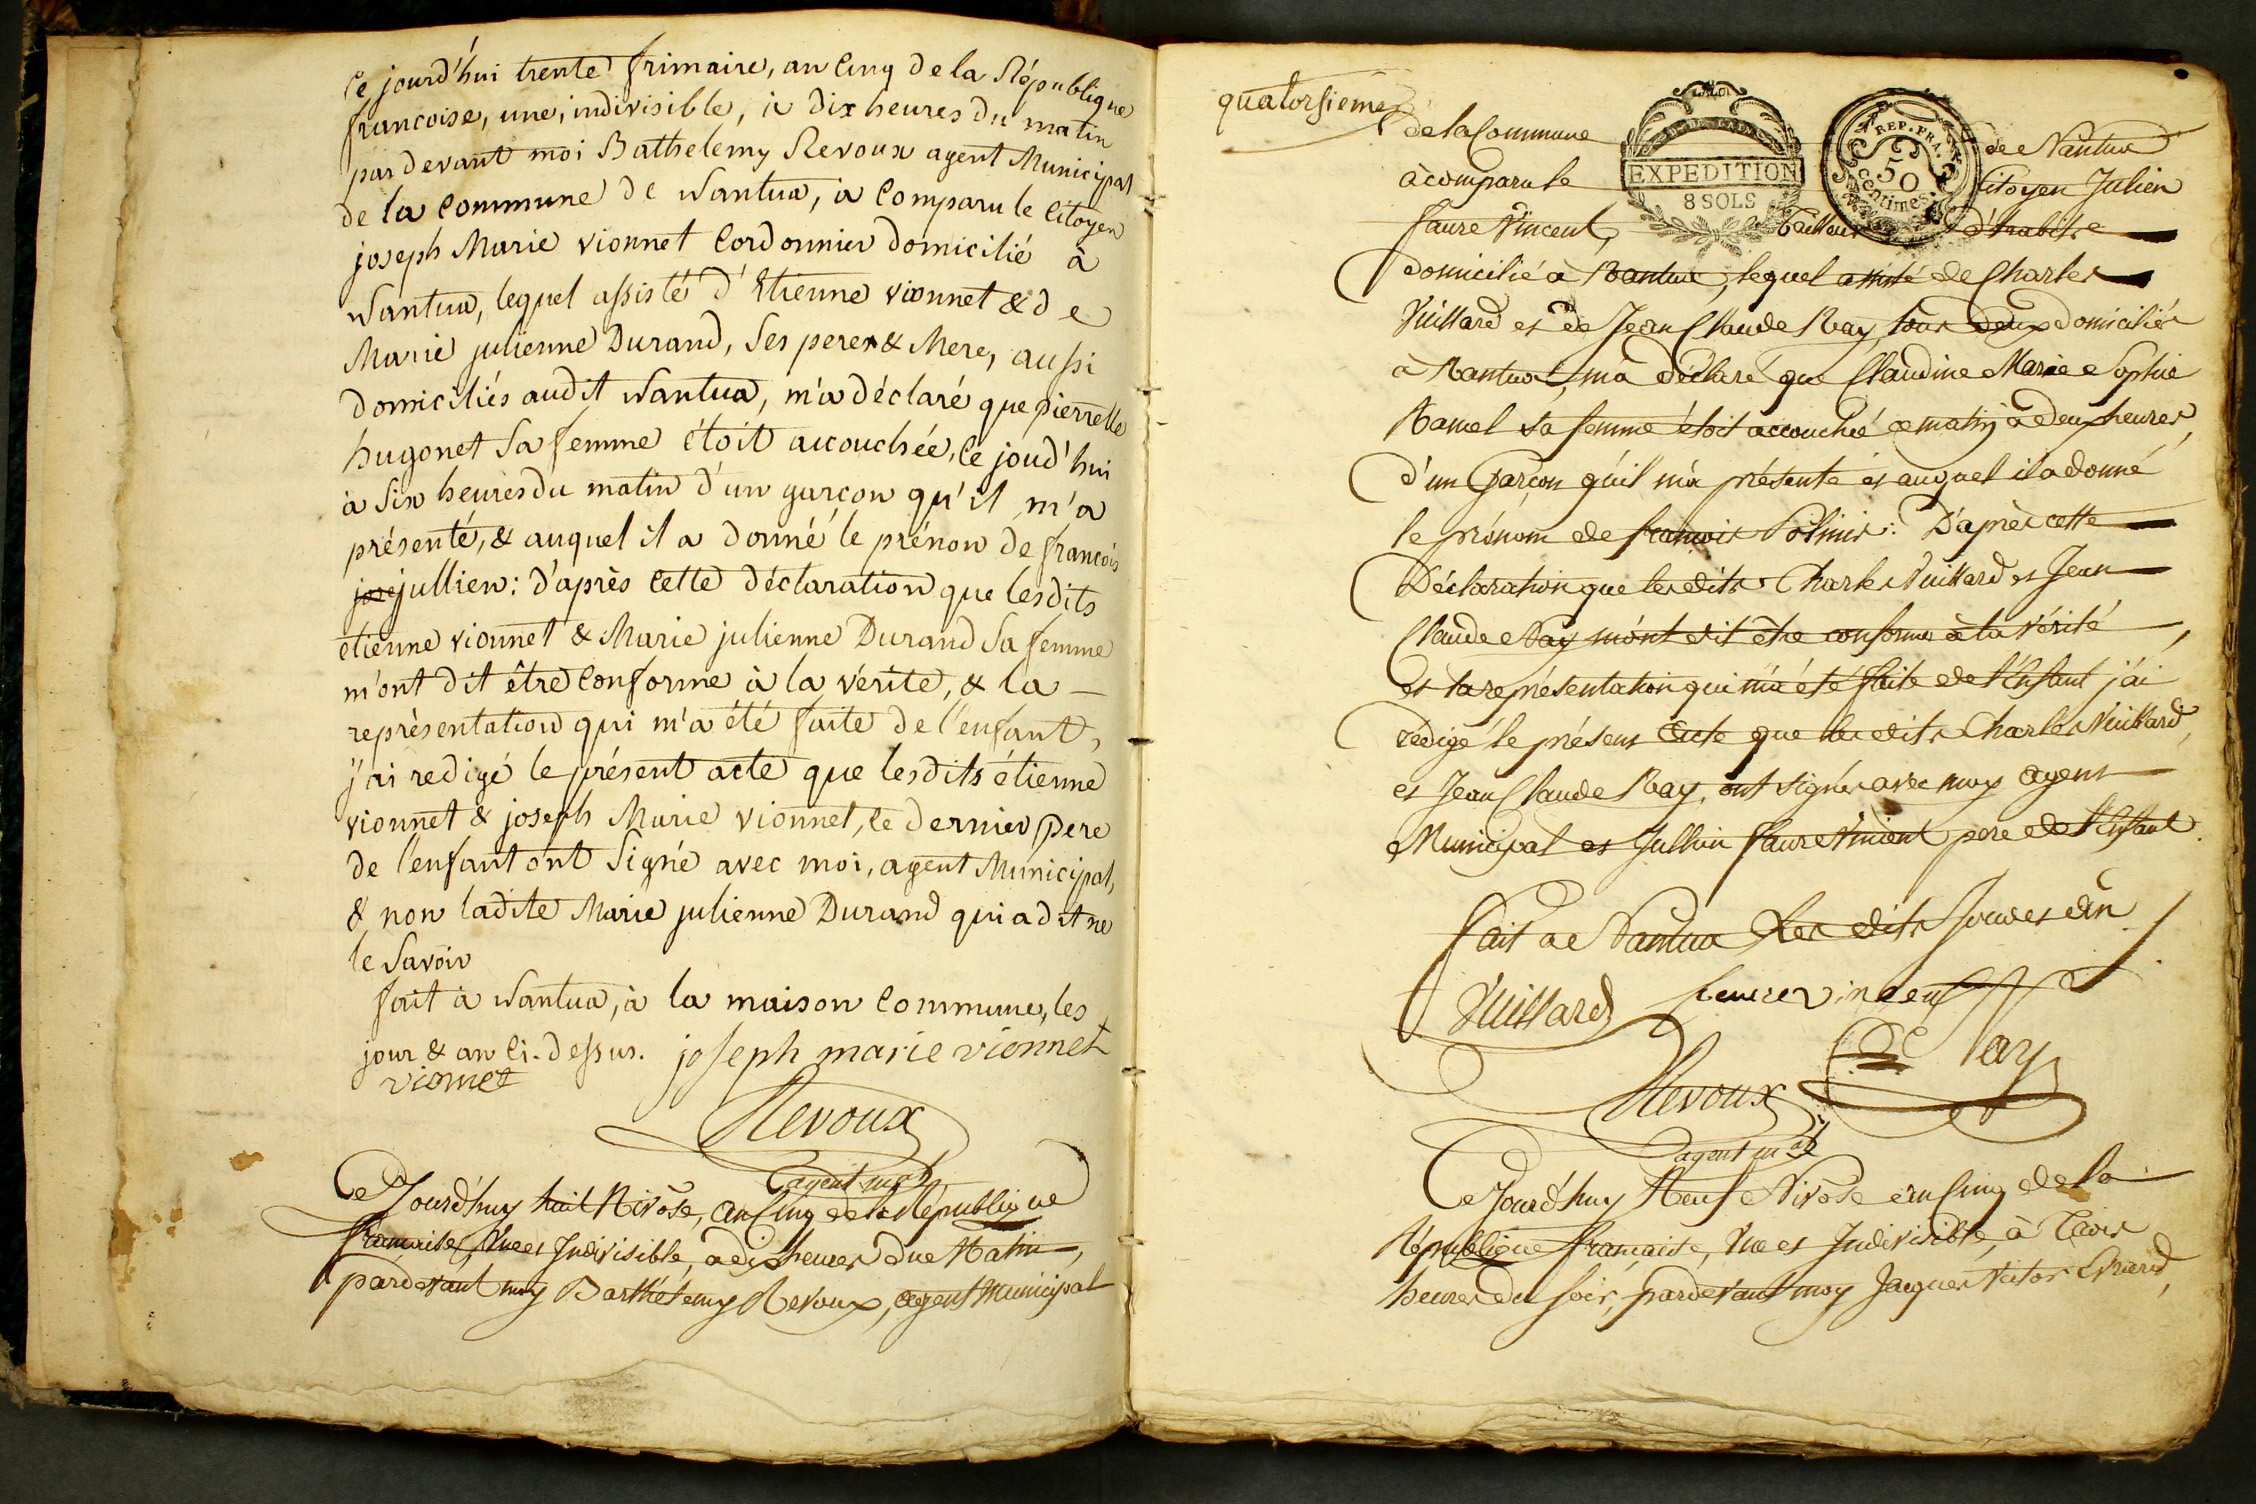 Ce jourd'hui trente frimaire, an Cinq de la République
francoise, une, indivisible, à dix heures du matin
pardevant moi Bathelemy Revoux agent Municipal
de la Commune de Nantua, a Comparu le Citoyen
joseph Marie vionnet Cordonnier domicilié à
Nantua, lequel assisté d'Etienne vionnet & de
Marie julienne Durand, Ses peres & Mere, aussi
domiciliés audit Nantua, m'a déclaré que pierrette
hugonet Sa femme étoit accouchée, Ce joud'hui
à Six heures du matin d'un garçon qu'il m'a
présenté, & auquel il a donné le prénom de francois
jose jullien: d'après Cette déclaration que lesdits
étienne vionnet & Marie julienne Durand Sa femme
m'ont dit être Conforme à la vérité, & la
représentation qui m'a été faite de l'enfant,
j'ai redigé le présent acte que lesdits étienne
vionnet & joseph Marie vionnet, ce dernier pere
de l'enfant ont Signé avec moi, agent Municipal,
& non ladite Marie julienne Durand qui a dit ne
le Savoir
fait à Nantua, à la maison Commune, les
jour & an Ci-dessus. joseph marie vionnet
vionnet
Revoux
agent m.al
Ce Jourd'huy huit Nivôse, an Cinq de la République
française, Une et Indivisible, a dix heures due Matin,
pardevant moy Barthélemy Revoux, agent Municipal
quatorsieme
de la Commune de Nantua
EXPEDITION
8 SOLS
REP. FRA.
50
centimes
à comparu le Citoyen Julien
faure Vincent, Tailleur d'habits
domicilié à Nantua, lequel assisté de Charles
Vuillard et de Jean Claude Ray tous deux domiciliés
à Nantua, m'a déclaré que Claudine Marie Sophie
Ramel sa femme étoit accouchée ce matin à deux heures,
d'un Garçon qu'il m'a présenté et auquel il a donné
le prénom de françois Solinis: D'après cette
Déclaration que lesdits Charles Vuillard et Jean
Claude Ray m'ont dit être conforme à la vérité,
et la représentation qui m'a été faite de l'Enfant j'ai
rédigé le présent acte que lesdits Charles Vuillard,
et Jean Claude Ray, ont signés avec moy agent
Municipal et Jullien faure Vincent pere de l'Enfant.
fait a Nantua Les dits Jour et an
Vuillard faure vincent
Ray
Revoux
agent m.al
Ce Jourd'huy Neuf Nivôse an Cinq de la
République française, Une et Indivisible, à Trois
heures du soir, pardevant moy Jacques Victor Evrard,